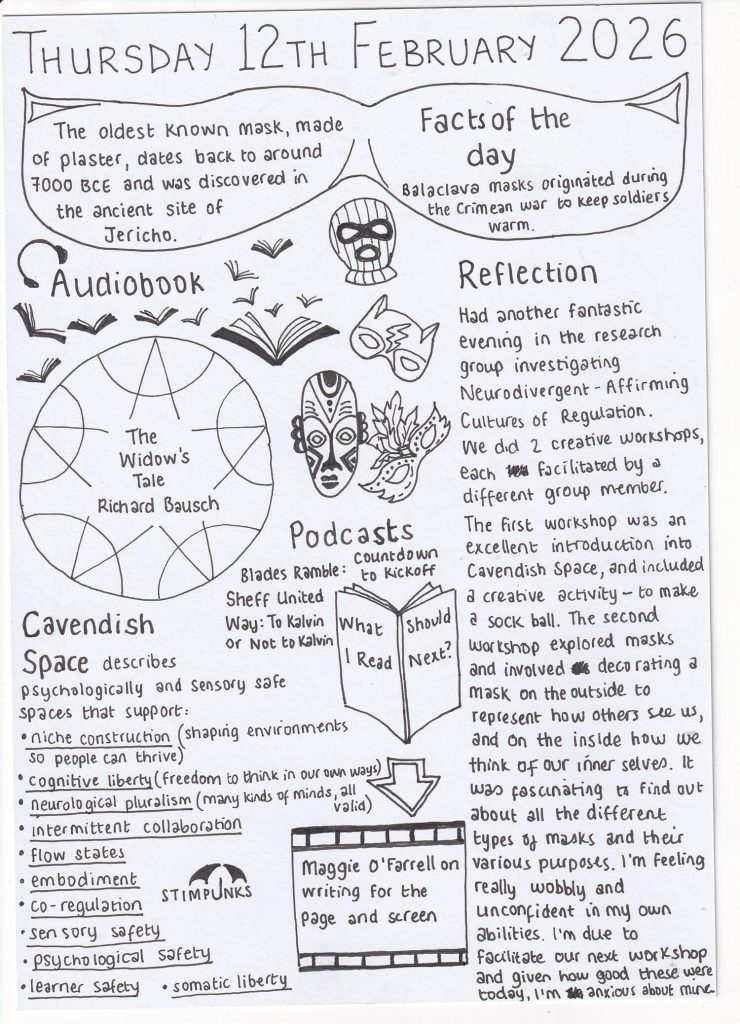 THURSDAY 12TH FEBRUARY 2026
The oldest known mask, made
of plaster, dates back to around
7000 BCE and was discovered in
the ancient site of
Jericho.
Facts of the
day
Balaclava masks originated during
the Crimean war to keep soldiers
warm.
Audiobook
The
Widow's
Tale
Richard Bausch
Podcasts
Blades Ramble: Countdown
to Kickoff
Sheff United
Way: To Kalvin
or Not to Kalvin
What
I Read
Should
Next?
Maggie O'Farrell on
writing for the
page and screen
Cavendish
Space describes
psychologically and sensory safe
spaces that support:
• niche construction (shaping environments
so people can thrive)
• cognitive liberty (freedom to think in our own ways)
• neurological pluralism (many kinds of minds, all
valid)
• intermittent collaboration
• flow states
• embodiment
• co-regulation
• sensory safety
• psychological safety
• learner safety
• somatic liberty
STIMPUNKS
Reflection
Had another fantastic
evening in the research
group investigating
Neurodivergent-Affirming
Cultures of Regulation.
We did 2 creative workshops,
each facilitated by a
different group member.
The first workshop was an
excellent introduction into
Cavendish Space, and included
a creative activity - to make
a sock ball. The second
workshop explored masks
and involved decorating a
mask on the outside to
represent how others see us,
and on the inside how we
think of our inner selves. It
was fascinating to find out
about all the different
types of masks and their
various purposes. I'm feeling
really wobbly and
unconfident in my own
abilities. I'm due to
facilitate our next workshop
and given how good these were
today, I'm anxious about mine